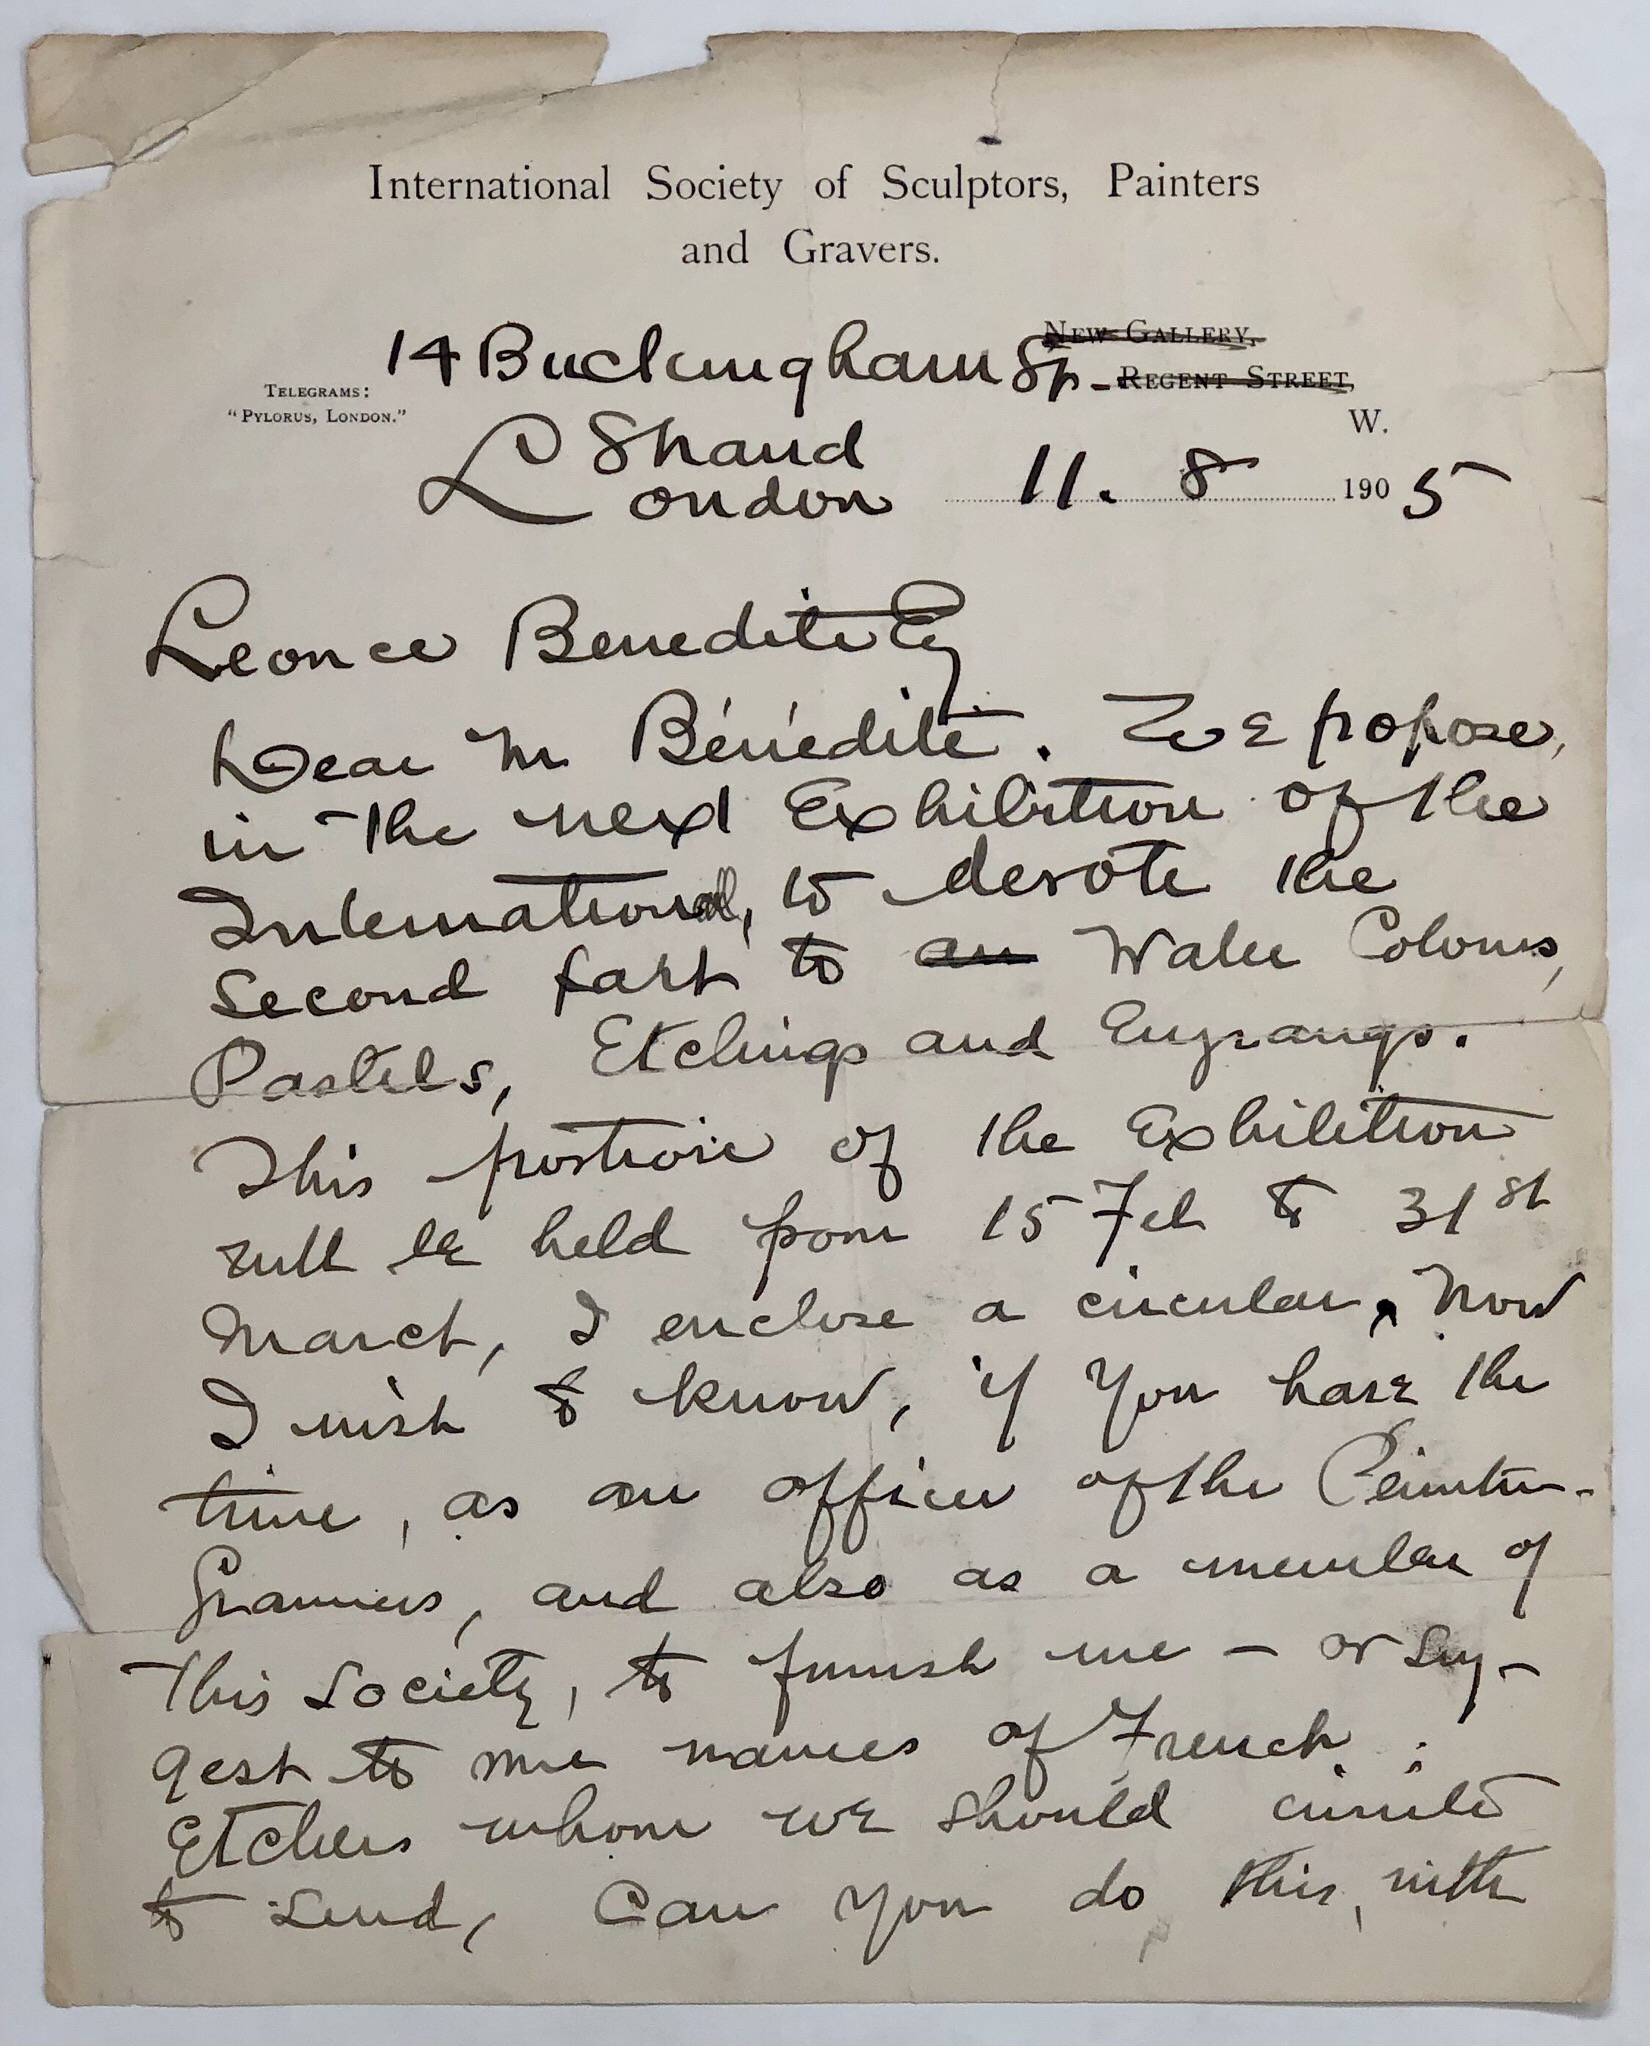 International Society of Sculptors, Painters
and Gravers.
NEW GALLERY,
14 Buckingham St- REGENT STREET,
TELEGRAMS:
"PYLORUS, LONDON."
W.
Strand
London
11. 8 1905
Leonce Benedite Esq
Dear Mr Bénédite. We propose,
in the next Exhibition of the
International, to devote the
second part to an Water Colours,
Pastels, Etchings and Engravgs.
This portion of the Exhibition
will be held from 15 Feb to 31st
March, I enclose a circular. Now
I wish to know, if you have the
time, as an officer of the Peintre-
Graveurs, and also as a member of
this Society, to furnish me - or sug-
gest to me names of French
Etchers whom we should invite
to send, Can you do this, with